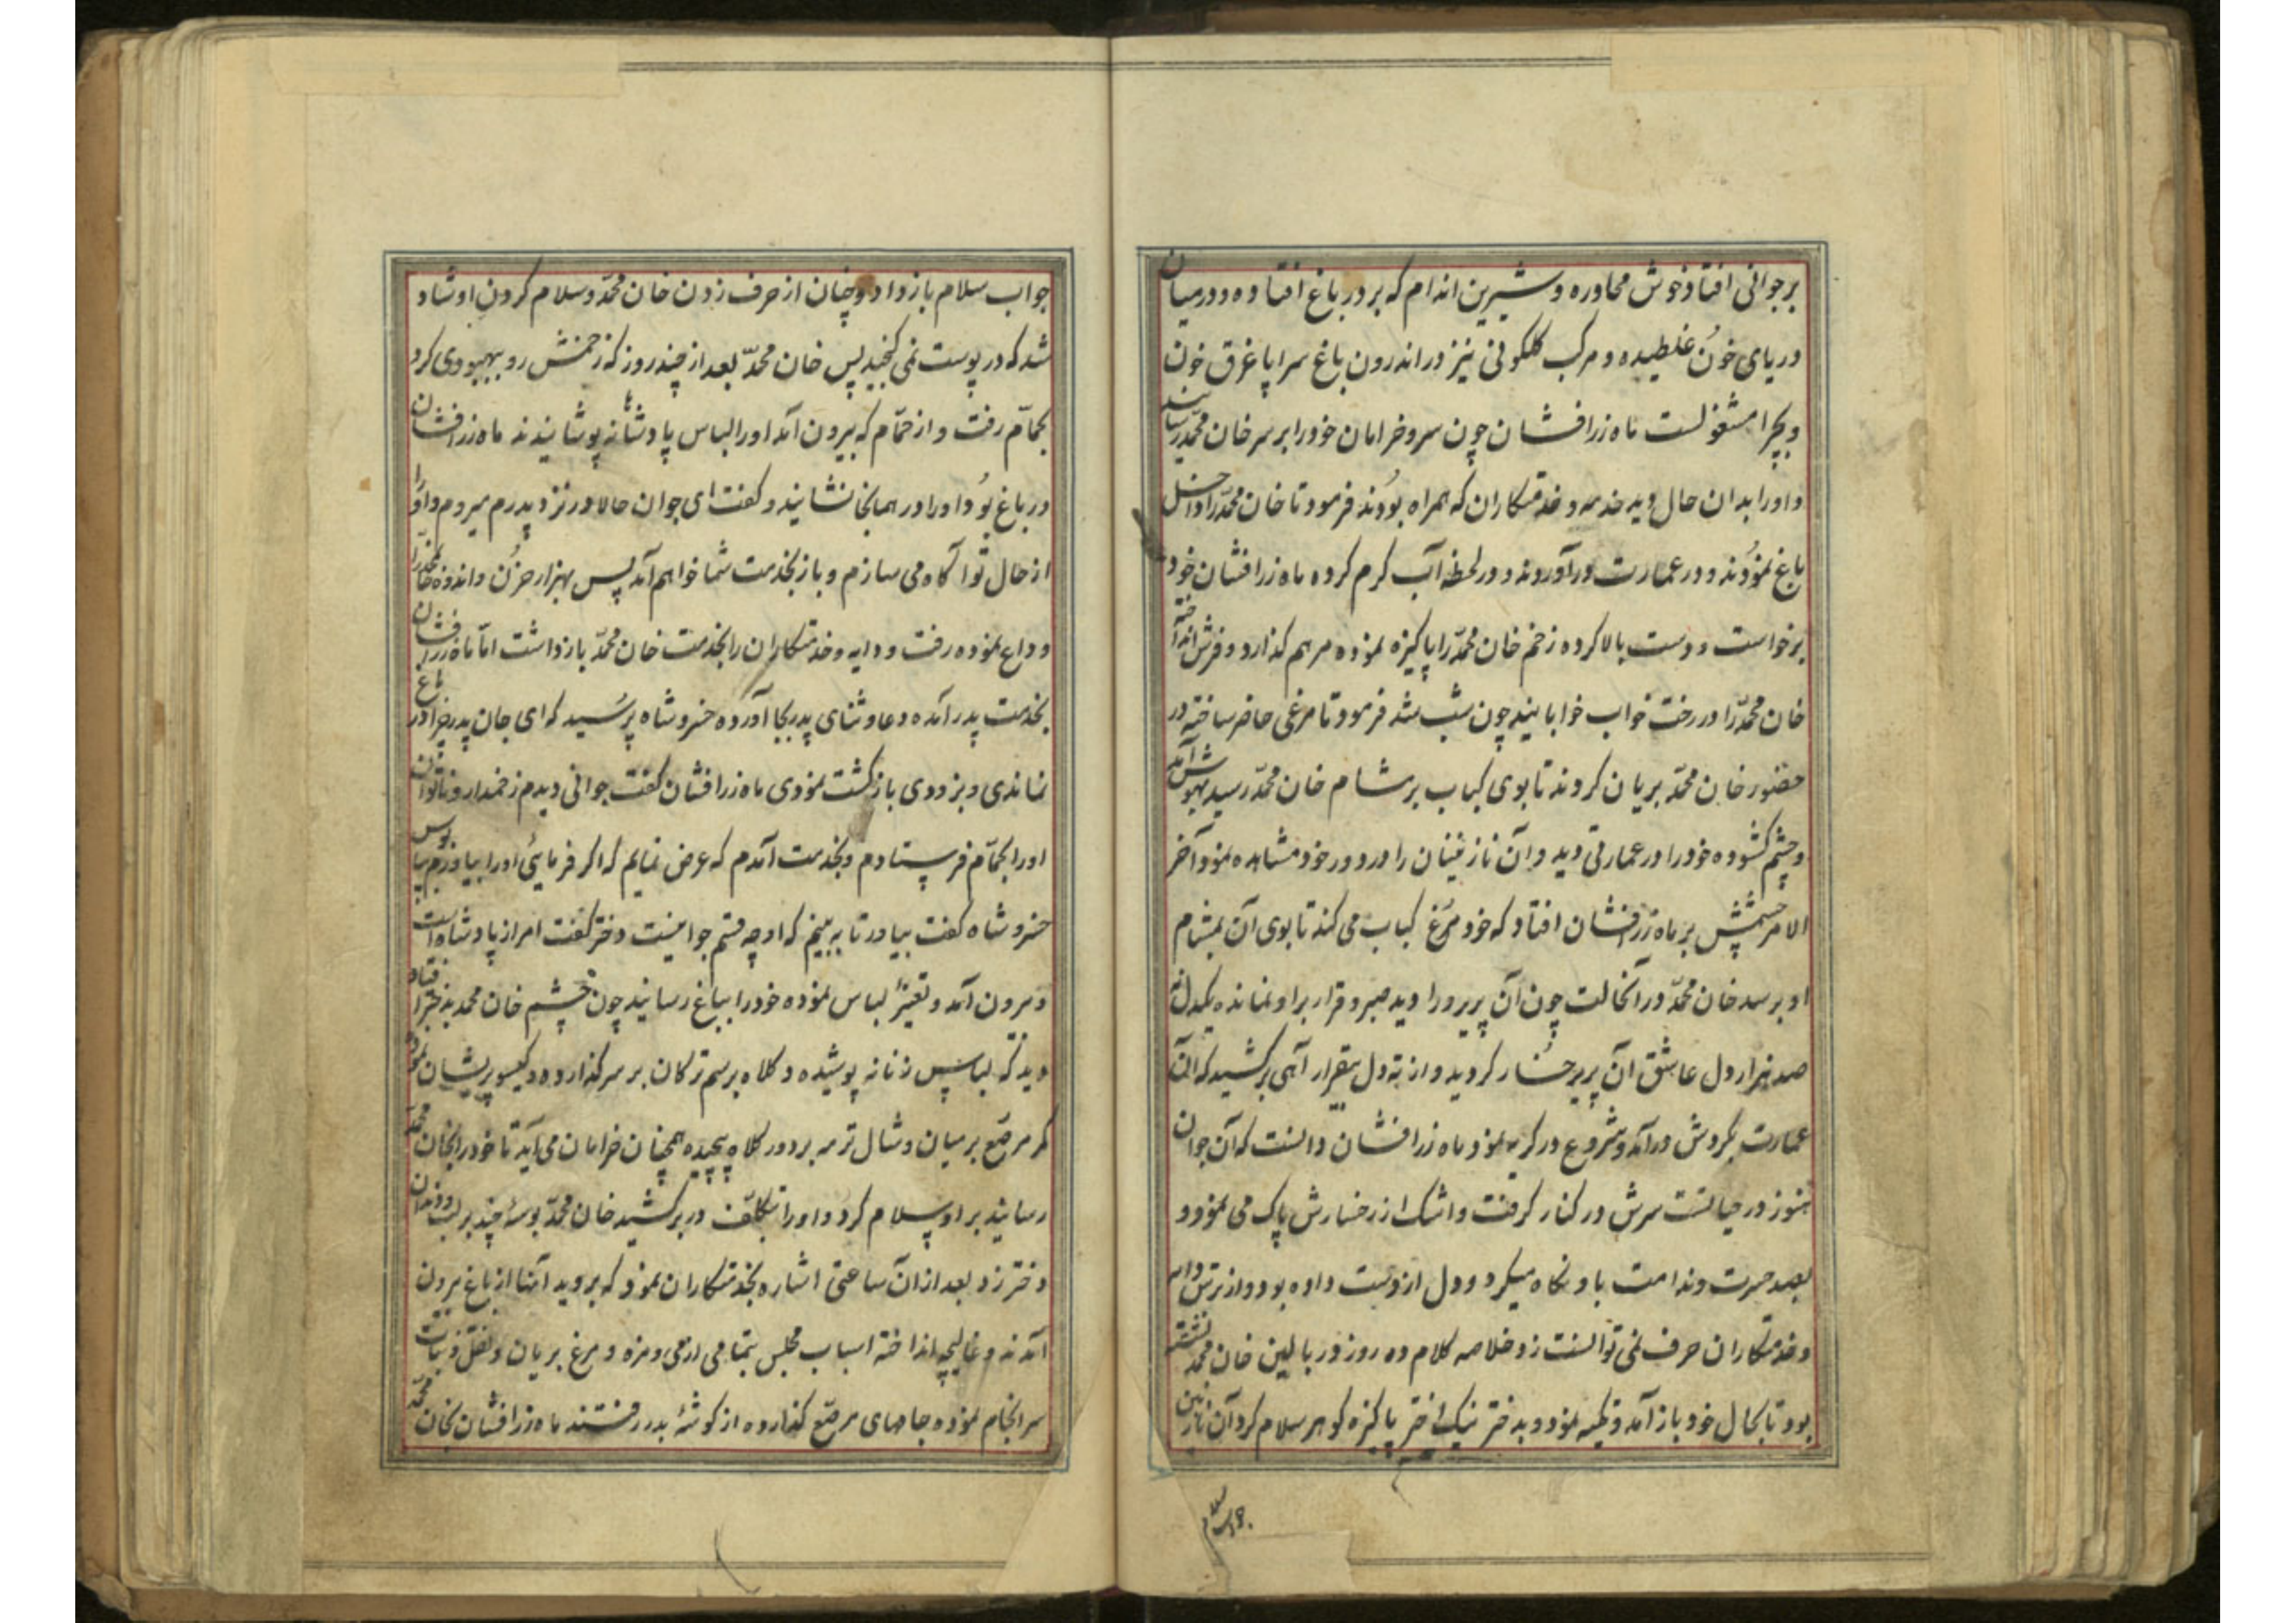 بر جوانی افتاد خوش محاوره و شیرین اندام که بر در باغ افتاده و در میان
دریای خون غلطیده و مرکب گلگونی نیز در اندرون باغ سراپا غرق خون
و بچرا مشغولست ماه زرافشان چون سرو خرامان خود را بر سر خان محمد رسانید
و او را بدان حال دید خدمه و خدمتکاران که همراه بودند فرمود تا خان محمد را داخل
باغ نمودند و در عمارت در آوردند و در لحظه آب گرم کرده ماه زرافشان خود
برخواست و دست بالا کرده زخم خان محمد را پاکیزه نموده مرهم گذارد و فرش انداخته
خان محمد را در رخت خواب خوابانید چون شب شد فرمود تا مرغی حاضر ساخته در
حضور خان محمد بریان کردند تا بوی کباب بر مشام خان محمد رسید بهوش آمد
و چشم گشوده خود را در عمارتی دید و آن نازنینان را در دور خود مشاهده نمود آخر
الامر چشمش بر ماه زرافشان افتاد که خود مرغ کباب می کند تا بوی آن بمشام
او برسد خان محمد در آنحالت چون آن پریرو را دید صبر و قرار بر او نمانده بیکدل نه
صد هزار دل عاشق آن پریرخسار گردید و از ته دل بیقرار آهی برکشید که آن
عمارت بگردش در آمد و شروع در گریه نمود ماه زرافشان دانست که آن جوان
هنوز در حیاتست سرش در کنار گرفت و اشک از رخسارش پاک می نمود و
بصد حسرت و ندامت باو نگاه میکرد و دل از دست داده بود و از ترس دایه
و خدمتکاران حرف نمی توانست زد خلاصه کلام ده روز در بالین خان محمد نشسته
بود تا بحال خود باز آمد و تکیه نمود و به دختر نیک اختر پاکیزه گوهر سلام کرد آن نازنین
جواب سلام
جواب سلام باز داد و چنان از حرف زدن خان محمد و سلام کردن او شاد
شد که در پوست نمی گنجید پس خان محمد بعد از چند روز که زخمش رو ببهبودی کرد
بحمام رفت و از حمام که بیرون آمد او را لباس پادشاهانه پوشانیدند ماه زرافشان
در باغ بود او را در همانجا نشانید و گفت ای جوان حالا در نزد پدرم میروم و او را
از حال تو آگاه می سازم و باز بخدمت شما خواهم آمد پس بهزار حزن و اندوه خان محمد را
وداع نموده رفت و دایه و خدمتکاران را بخدمت خان محمد باز داشت اما ماه زرافشان
بخدمت پدر آمده دعا و ثنای پدر بجا آورده خسرو شاه پرسید که ای جان پدر چرا در باغ
نماندی و بزودی بازگشت نمودی ماه زرافشان گفت جوانی دیدم زخمدار و ناتوان
او را بحمام فرستادم و بخدمت آمدم که عرض نمایم که اگر فرمایی او را بیاورم بپابوس
خسرو شاه گفت بیاور تا به بینم که او چه قسم جوانیست دختر گفت امر از پادشاه است
و بیرون آمد و تغییر لباس نموده خود را بباغ رسانید چون چشم خان محمد بدختر افتاد
دید که لباس زنانه پوشیده و کلاه برسم ترکان بر سر گذارده و گیسو پریشان نموده
کمر مرصع بر میان و شال ترمه بر دور کلاه پیچیده همچنان خرامان می آید تا خود را بخان محمد
رسانید بر او سلام کرد و او را بتکلف در بر کشید خان محمد بوسهٔ چند بر لب و دندان
دختر زد بعد از آن ساعتی اشاره بخدمتکاران نمود که بروید آنها از باغ بیرون
آمدند و غالیچه انداخته اسباب مجلس بتمامی از می و مزه و مرغ بریان و نقل و نبات
سرانجام نموده جامهای مرصع گذارده از گوشهٔ بدر رفتند ماه زرافشان بخان محمد